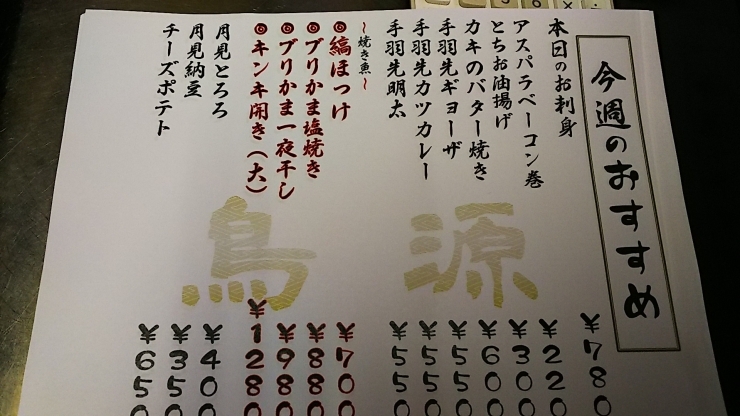 今週のおすすめ
本日のお刺身 ¥780
アスパラベーコン巻 ¥220
とちお油揚げ ¥300
カキのバター焼き ¥600
手羽先ギョーザ ¥550
手羽先カツカレー ¥550
手羽先明太 ¥550
～焼き魚～
◎縞ほっけ ¥700
◎ブリかま塩焼き ¥880
◎ブリかま一夜干し ¥980
◎キンキ開き（大） ¥1280
月見とろろ ¥400
月見納豆 ¥350
チーズポテト ¥650
鳥源